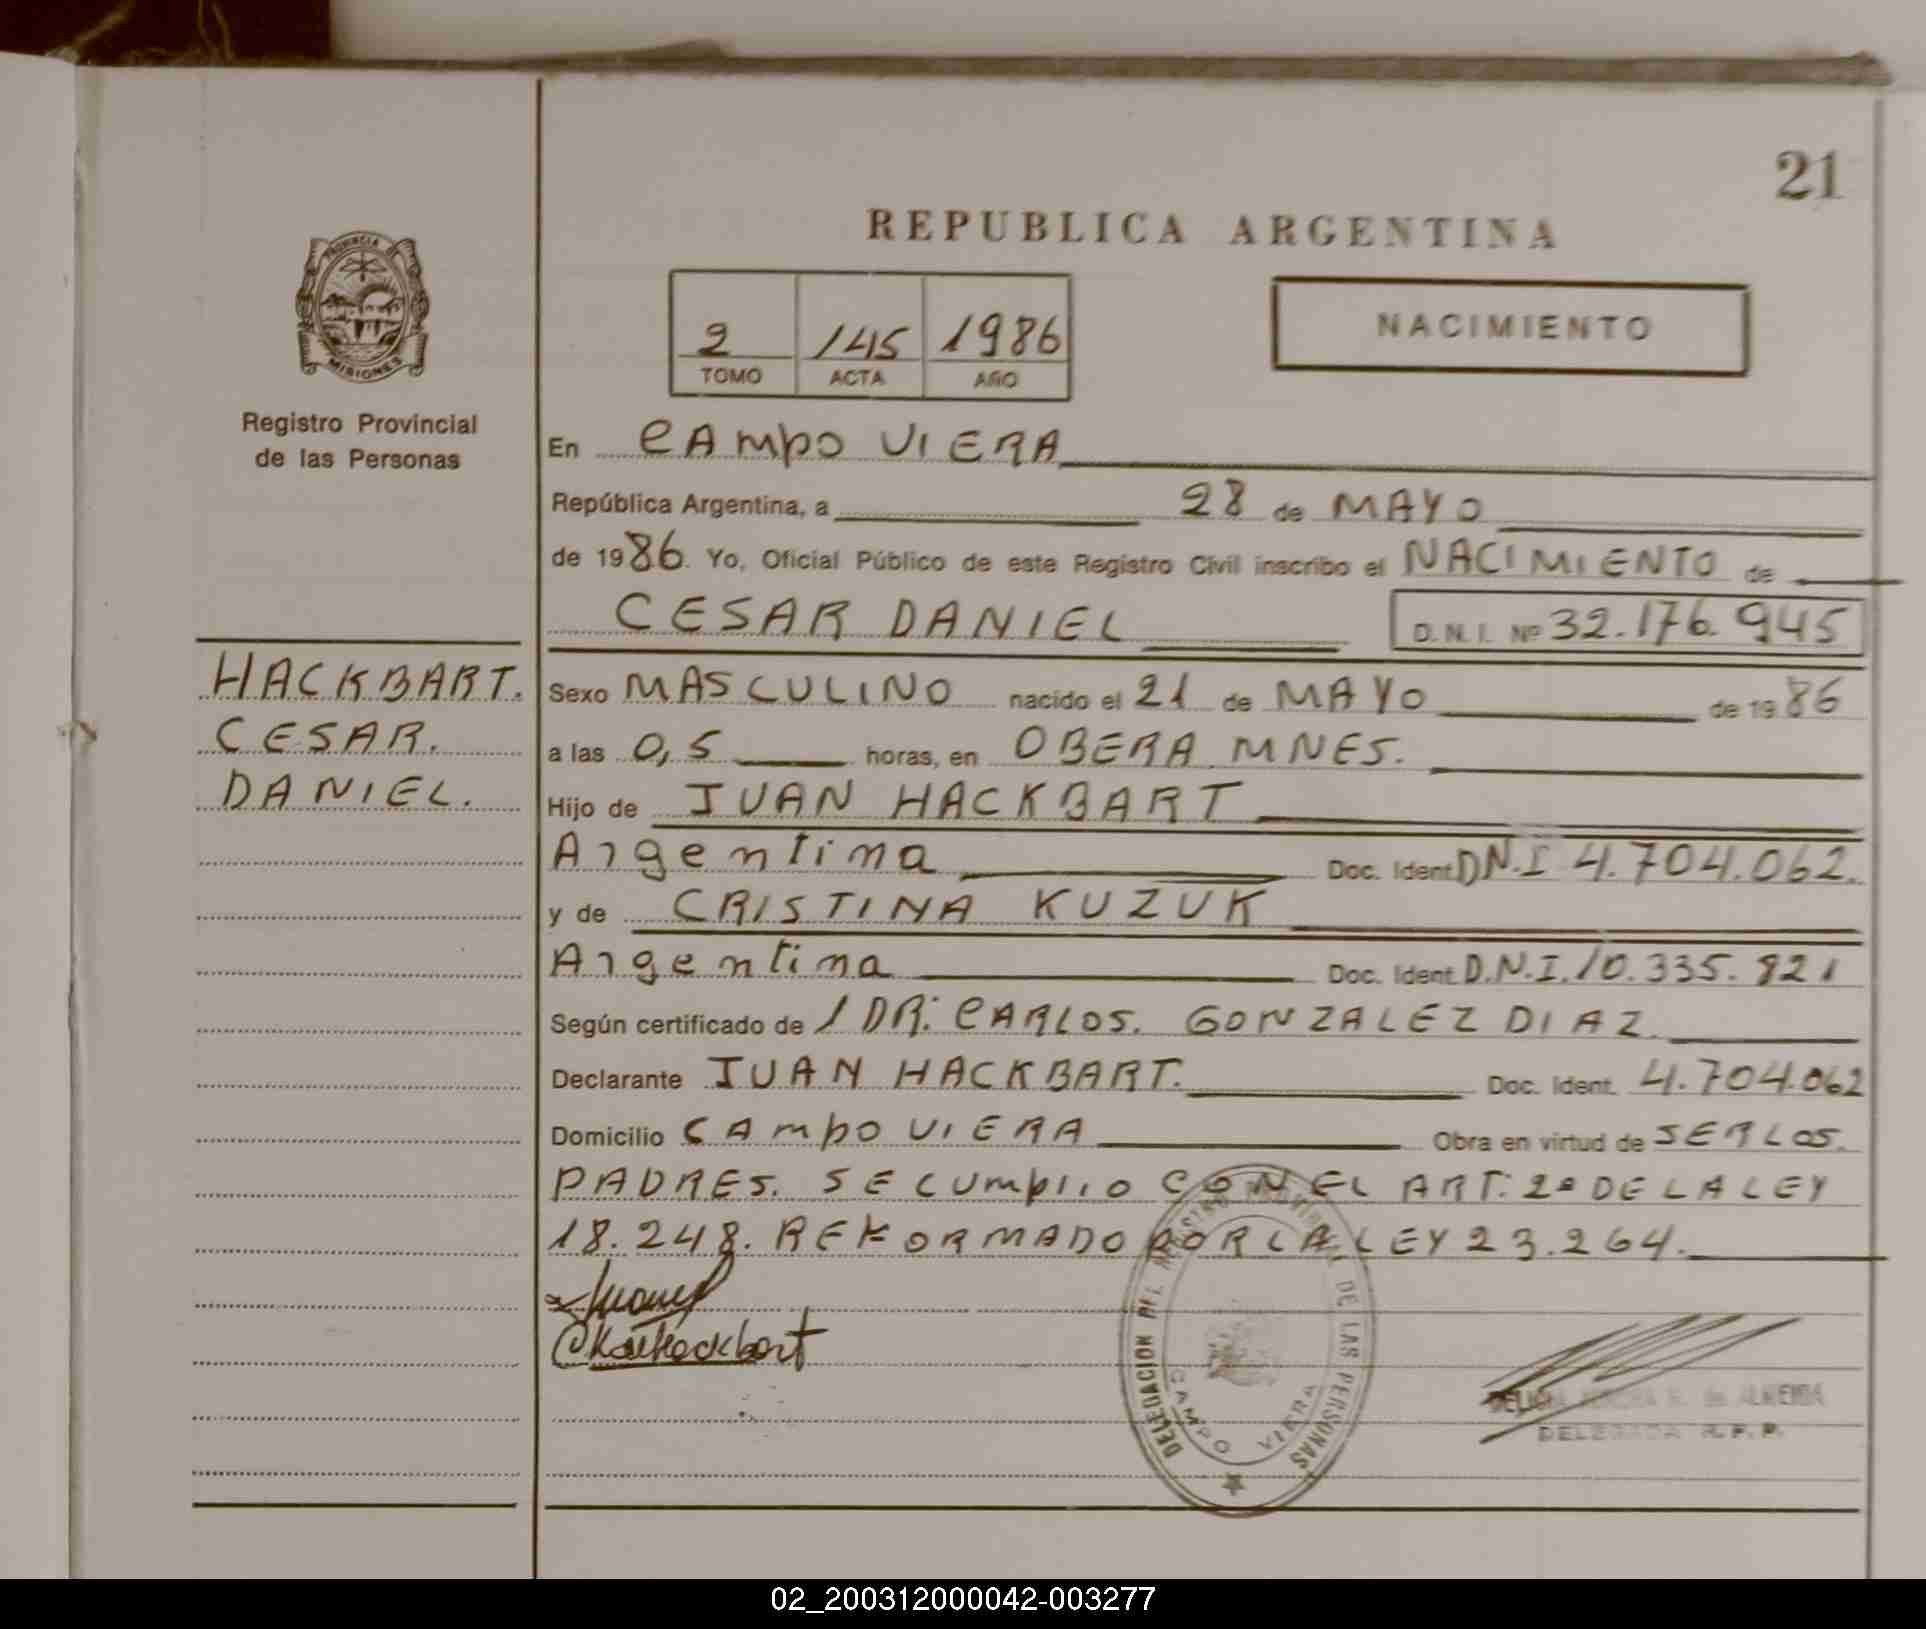 21
REPUBLICA ARGENTINA
PROVINCIA
MISIONES
Registro Provincial
de las Personas
2 145 1986
TOMO ACTA AÑO
NACIMIENTO
En CAMPO VIERA
República Argentina, a 28 de MAYO
de 1986. Yo, Oficial Público de este Registro Civil inscribo el NACIMIENTO de
CESAR DANIEL D.N.I. Nº 32.176.945
HACKBART.
CESAR.
DANIEL.
Sexo MASCULINO nacido el 21 de MAYO de 1986
a las 0,5 horas, en OBERA MNES.
Hijo de JUAN HACKBART
Argentina Doc. Ident. D.N.I 4.704.062.
y de CRISTINA KUZUK
Argentina Doc. Ident. D.N.I. 10.335.821
Según certificado de 1 DR: CARLOS. GONZALEZ DIAZ.
Declarante JUAN HACKBART. Doc. Ident. 4.704.062
Domicilio CAMPO VIERA Obra en virtud de SER LOS.
PADRES. SE CUMPLIO CON EL ART: 2º DE LA LEY
18.248. REFORMADO POR LA LEY 23.264.
Hackbart
DELEGACION DEL REGISTRO PROVINCIAL DE LAS PERSONAS
CAMPO VIERA
DELICIA de ALMEIDA
DELEGADA R.P.P.
02_200312000042-003277